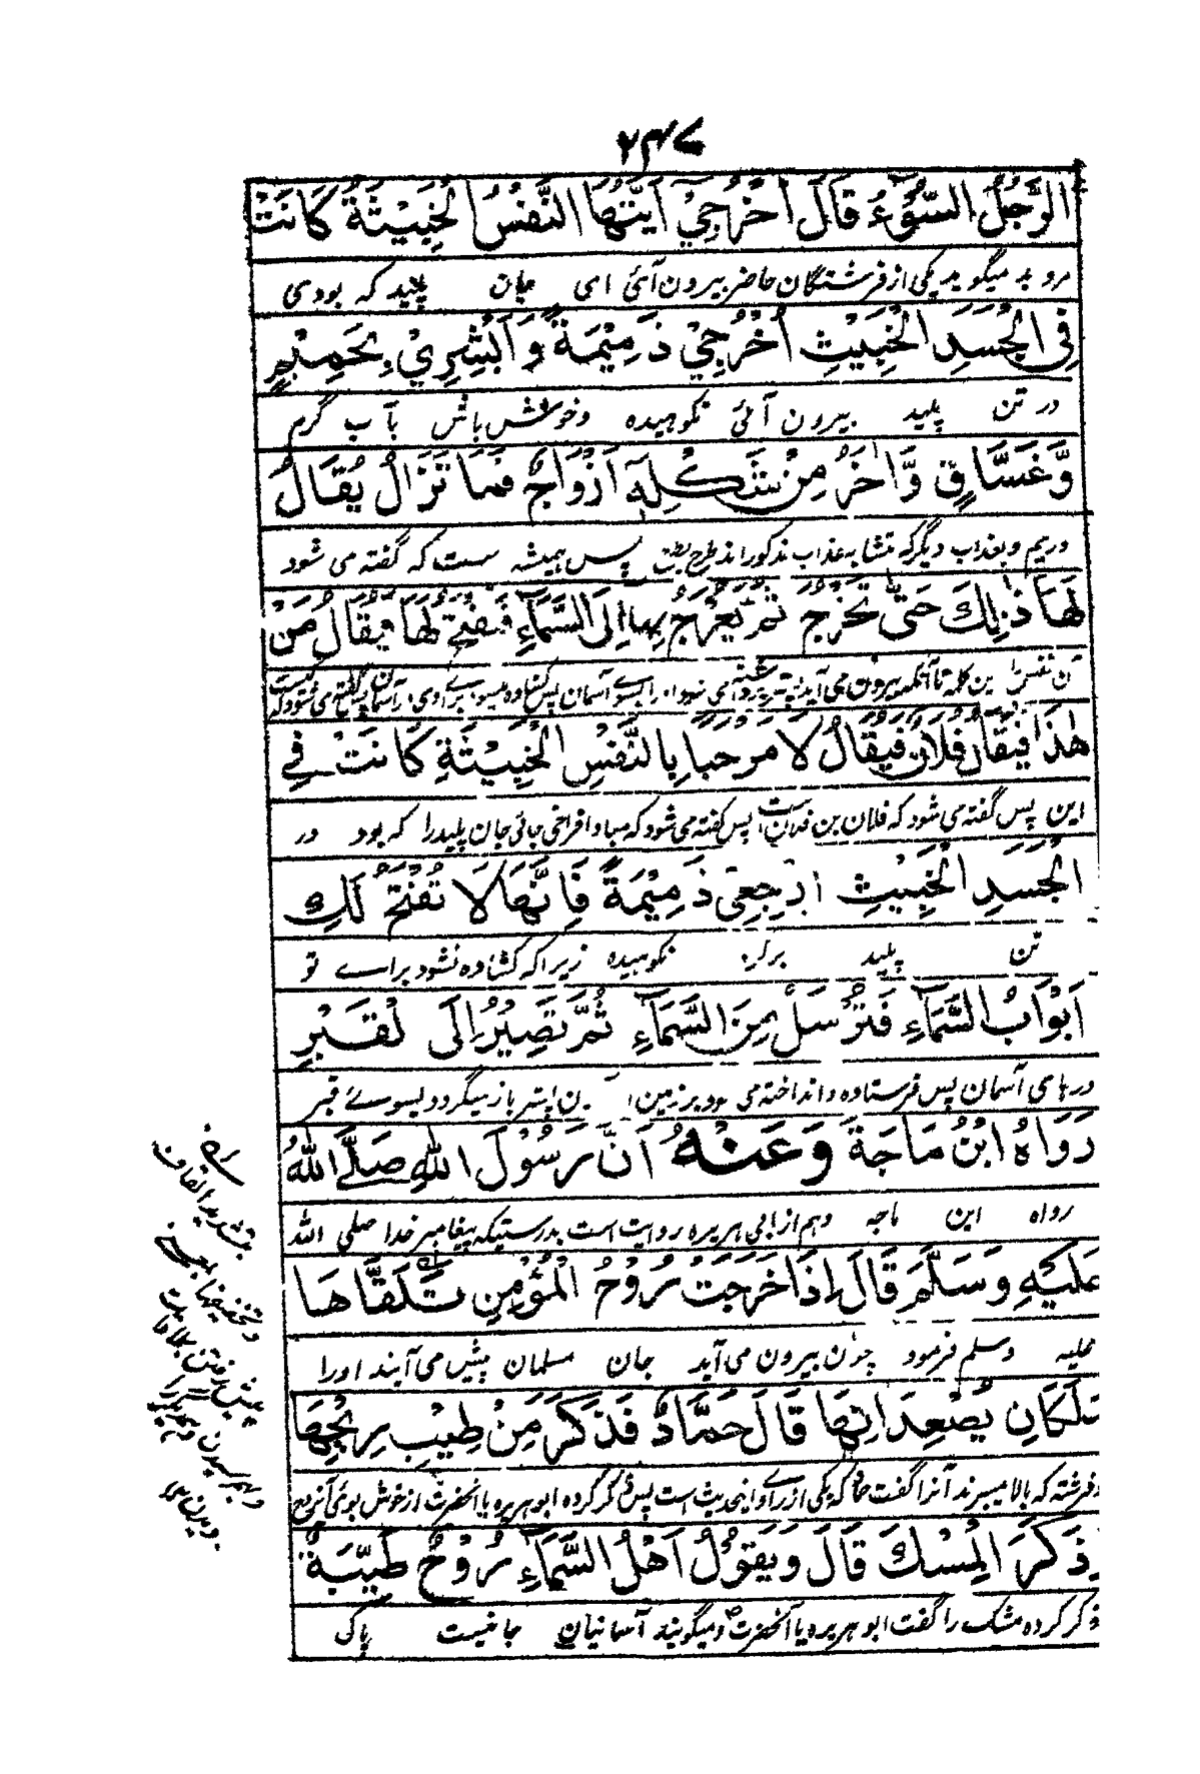 ۲۴۷
الرَّجُلُ السُّوْٓءُ قَالَ اُخْرُجِيْ اَيَّتُهَا النَّفْسُ الْخَبِيْثَةُ كَانَتْ
مرد بد میگوید یکی از فرشتگان حاضر بیرون آئی ای جان پلید که بودی
فِی الْجَسَدِ الْخَبِيْثِ اُخْرُجِيْ ذَمِيْمَةً وَاَبْشِرِيْ بِحَمِيْمٍ
در تن پلید بیرون آئی نکوهیده و خوش باش بآب گرم
وَّغَسَّاقٍ وَّاٰخَرُ مِنْ شَكْلِهٖ اَزْوَاجٌ فَمَا تَزَالُ يُقَالُ
وریم و بعذاب دیگر که متشابه عذاب مذکور اند پس همیشه ست که گفته می شود
لَهَا ذٰلِكَ حَتّٰى تَخْرُجَ ثُمَّ يُعْرَجُ بِهَا اِلَى السَّمَآءِ فَيُفْتَحُ لَهَا فَيُقَالُ مَنْ
این کلمه تا آنکه بیرون می آید آسمان پس
هٰذَا فَيُقَالُ فُلَانٌ فَيُقَالُ لَا مَرْحَبًا بِالنَّفْسِ الْخَبِيْثَةِ كَانَتْ فِي
این پس گفته می شود که فلان بن فلان است پس گفته می شود که مباد فراخی جائی جان پلید را که بود در
الْجَسَدِ الْخَبِيْثِ ارْجِعِيْ ذَمِيْمَةً فَاِنَّهَا لَا تُفْتَحُ لَكِ
تن پلید برگرد نکوهیده زیرا که کشاده نشود براے تو
اَبْوَابُ السَّمَآءِ فَتُرْسَلُ مِنَ السَّمَآءِ ثُمَّ تَصِيْرُ اِلَى الْقَبْرِ
درهای آسمان پس فرستاده و انداخته می شود بر زمین پستر باز میگردد بسوئے قبر
رَوَاهُ ابْنُ مَاجَةَ وَعَنْهُ اَنَّ رَسُوْلَ اللّٰهِ صَلَّى اللّٰهُ
رواه ابن ماجه و هم از ابی هریره روایت است بدرستیکه پیغامبر خدا صلی الله
عَلَيْهِ وَسَلَّمَ قَالَ اِذَا خَرَجَتْ رُوْحُ الْمُؤْمِنِ تَلَقَّاهَا
علیه وسلم فرمود چون بیرون می آید جان مسلمان پیش می آیند اورا
مَلَكَانِ يُصْعِدَانِهَا قَالَ حَمَّادٌ فَذَكَرَ مِنْ طِيْبِ رِيْحِهَا
دو فرشته که بالا میبرند آنرا گفت حماد که یکی از راوی اینحدیث است پس ذکر کرده ابو هریره یا آنحضرت از خوش بوئی آنروح
وَذَكَرَ الْمِسْكَ قَالَ وَيَقُوْلُ اَهْلُ السَّمَآءِ رُوْحٌ طَيِّبَةٌ
و ذکر کرده مشک را گفت ابو هریره یا آنحضرت و میگویند آسمانیان جانیست پاکی
بتشدید القاف